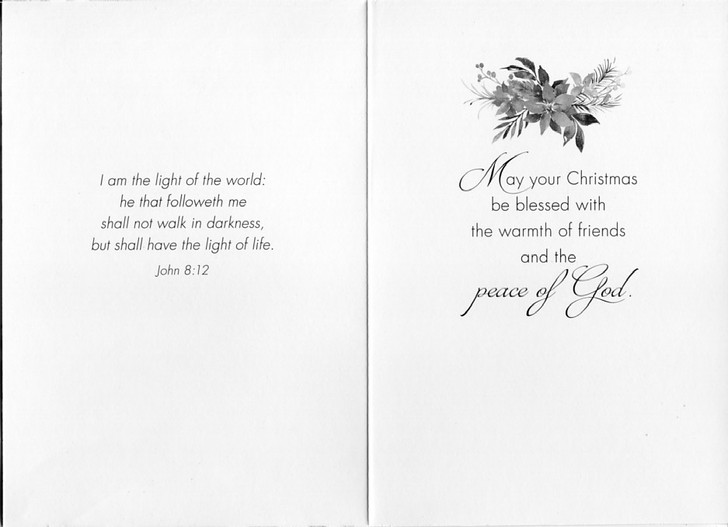 I am the light of the world:
he that followeth me
shall not walk in darkness,
but shall have the light of life.
John 8:12
May your Christmas
be blessed with
the warmth of friends
and the
peace of God.